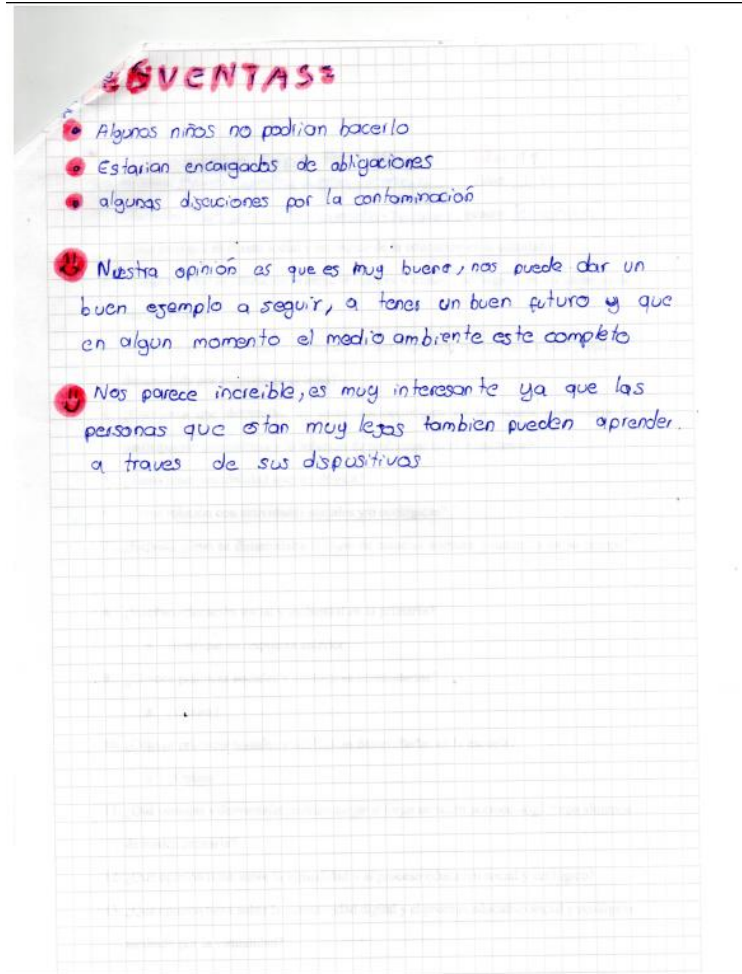 DESVENTAS:
Algunos niños no podrian hacerlo
Estarian encargados de obligaciones
algunas discuciones por la contaminación
Nuestra opinión as que es muy buena, nos puede dar un
buen egemplo a seguir, a tener un buen futuro y que
en algun momento el medio ambiente este completo
Nos parece increible, es muy interesante ya que las
personas que estan muy legas tambien pueden aprender.
a traves de sus dispositivos